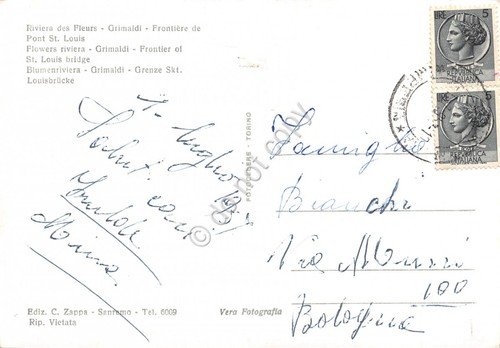 Riviera des Fleurs - Grimaldi - Frontière de
Pont St. Louis
Flowers riviera - Grimaldi - Frontier of
St. Louis bridge
Blumenriviera - Grimaldi - Grenze Skt.
Louisbrücke
luglio
Saluti cari
Maura
Ediz. C. Zappa - Sanremo - Tel. 6009
Rip. Vietata
Vera Fotografia
FOTOCELERE - TORINO
LIRE 5
REPUBBLICA
ITALIANA
LIRE 5
REPUBBLICA
ITALIANA
Famiglia
Bianchi
Via Murri
100
Bologna
do not copy